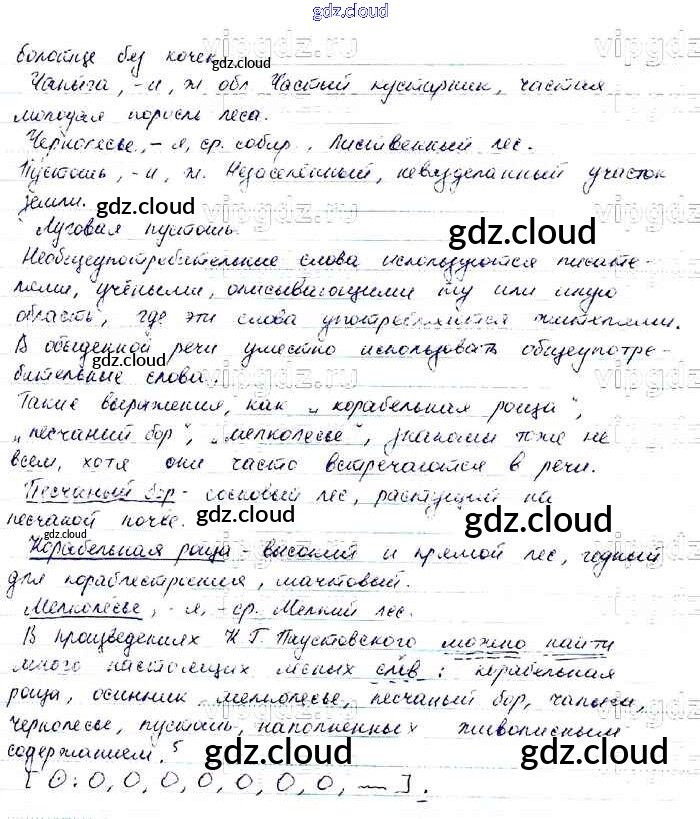 gdz.cloud
болотце без кочек gdz.cloud vipgdz.ru
Чапы́га, -и, ж. обл. Частый кустарник, частая
молодая поросль леса.
Чернолесье, -я, ср. собир., Лиственный лес.
Пустошь, -и, ж. Незаселённый, невозделанный участок
земли. gdz.cloud vipgdz.ru
Луговая пустошь. gdz.cloud
Необщеупотребительные слова используются писате-
лями, учёными, описывающими ту или иную
область, где эти слова употребляются жителями.
В обыденной речи уместно использовать общеупотре-
бительные слова. vipgdz.ru
Такие выражения, как „корабельная роща",
„песчаный бор", „мелколесье", знакомы тоже не
всем, хотя они часто встречаются в речи.
Песчаный бор - сосновый лес, растущий на
песчаной почве. gdz.cloud gdz.cloud
gdz.cloud
Корабельная роща - высокий и прямой лес, годный
для кораблестроения, мачтовый.
Мелколесье, -я, -ср. Мелкий лес.
В произведениях К. Г. Паустовского можно найти
много настоящих лесных слов: корабельная
роща, осинник, мелколесье, песчаный бор, чапыга,
чернолесье, пустошь, наполненных живописным
содержанием. 5 gdz.cloud gdz.cloud
[ O: O, O, O, O, O, O, O, ~ ].